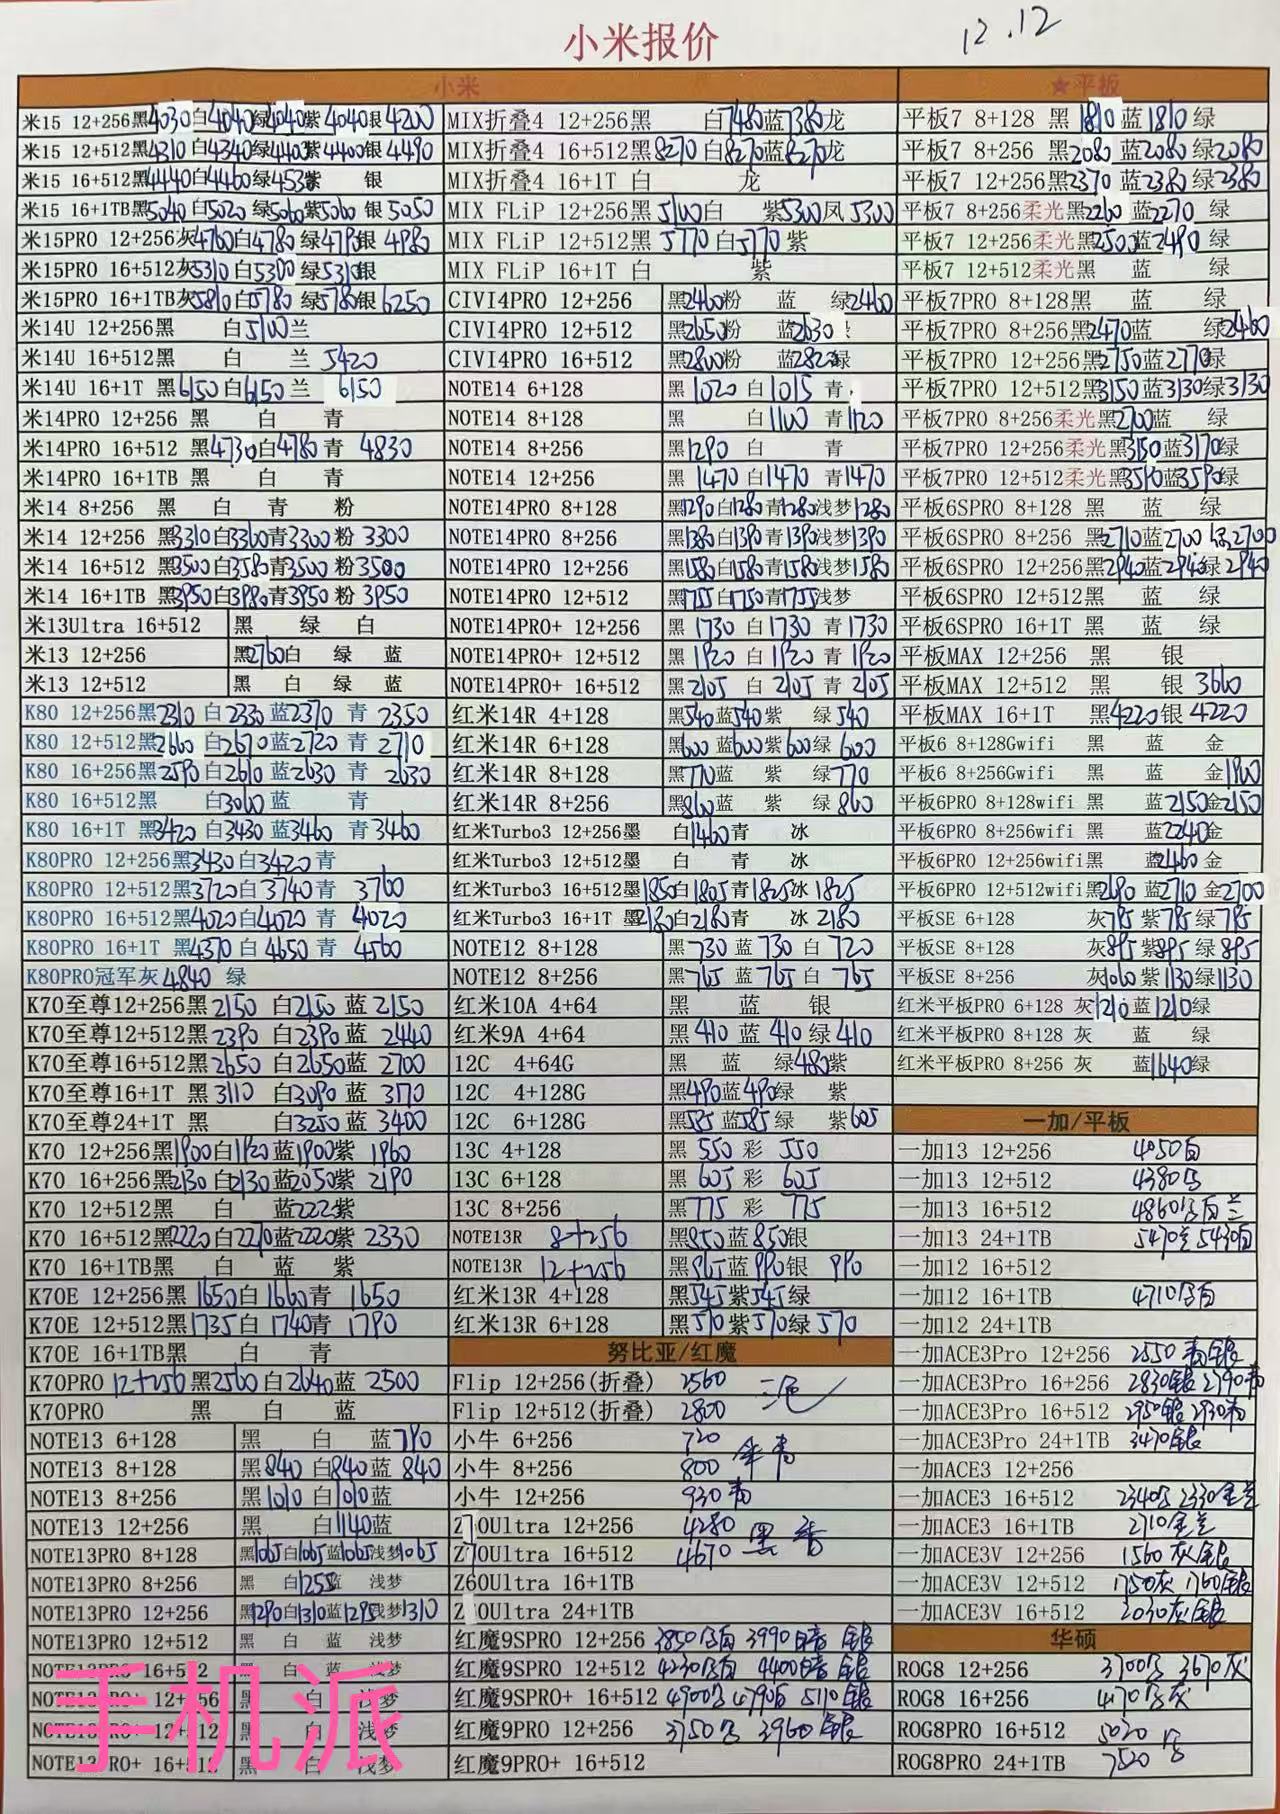 小米报价
12.12
小米
米15 12+256黑4030白4040绿4040紫4040银4200
米15 12+512黑4310白4340绿4400紫4400银4490
米15 16+512黑4440白4460绿453 紫 银
米15 16+1TB黑5040白5020绿5060紫5060银5050
米15PRO 12+256灰4760白4780绿4790银4980
米15PRO 16+512灰5310白5300绿5310银
米15PRO 16+1TB灰5810白5780绿5780银6250
米14U 12+256黑 白5100兰
米14U 16+512黑 白 兰5420
米14U 16+1T 黑6150白6150兰6150
米14PRO 12+256 黑 白 青
米14PRO 16+512 黑4730白4780青4830
米14PRO 16+1TB 黑 白 青
米14 8+256 黑 白 青 粉
米14 12+256 黑3310白3360青3300粉3300
米14 16+512 黑3500白3580青3500粉3500
米14 16+1TB 黑3950白3980青3950粉3950
米13Ultra 16+512 黑 绿 白
米13 12+256 黑2760白 绿 蓝
米13 12+512 黑 白 绿 蓝
K80 12+256黑2310白2330蓝2370青2350
K80 12+512黑2660白2670蓝2720青2710
K80 16+256黑2590白2610蓝2630青2630
K80 16+512黑 白3060蓝 青
K80 16+1T 黑3420白3430蓝3460青3460
K80PRO 12+256黑3430白3420青
K80PRO 12+512黑3720白3740青3760
K80PRO 16+512黑4020白4020青4020
K80PRO 16+1T 黑4370白4650青4560
K80PRO冠军灰4840 绿
K70至尊12+256黑2150白2150蓝2150
K70至尊12+512黑2390白2390蓝2440
K70至尊16+512黑2650白2650蓝2700
K70至尊16+1T 黑3110白3090蓝3170
K70至尊24+1T 黑 白3250蓝3400
K70 12+256黑1900白1920蓝1900紫1960
K70 16+256黑2130白2130蓝2050紫2190
K70 12+512黑 白 蓝222 紫
K70 16+512黑2220白2270蓝2220紫2330
K70 16+1TB黑 白 蓝 紫
K70E 12+256黑1650白1660青1650
K70E 12+512黑1735白1740青1790
K70E 16+1TB黑 白 青
K70PRO 12+256黑2560白2640蓝2500
K70PRO 黑 白 蓝
NOTE13 6+128 黑 白 蓝790
NOTE13 8+128 黑840白840蓝840
NOTE13 8+256 黑1010白1010蓝
NOTE13 12+256 黑 白1140蓝
NOTE13PRO 8+128 黑1065白1065蓝1065浅梦1065
NOTE13PRO 8+256 黑 白1255蓝 浅梦
NOTE13PRO 12+256 黑1290白1310蓝1295浅梦1310
NOTE13PRO 12+512 黑 白 蓝 浅梦
NOTE13PRO 16+512 黑 白 蓝 浅梦
NOTE13PRO+ 12+256 黑 白 浅梦
NOTE13PRO+ 12+512 黑 白 浅梦
NOTE13PRO+ 16+512 黑 白 浅梦
手机派
MIX折叠4 12+256黑 白7480蓝7380龙
MIX折叠4 16+512黑8270白8270蓝8270龙
MIX折叠4 16+1T 白 龙
MIX FLiP 12+256黑5100白 紫5300凤5300
MIX FLiP 12+512黑5770白5770紫
MIX FLiP 16+1T 白 紫
CIVI4PRO 12+256 黑2460粉 蓝 绿2460
CIVI4PRO 12+512 黑2650粉 蓝2630
CIVI4PRO 16+512 黑2800粉 蓝282 绿
NOTE14 6+128 黑1020白1015青
NOTE14 8+128 黑 白1100青1120
NOTE14 8+256 黑1290白 青
NOTE14 12+256 黑1470白1470青1470
NOTE14PRO 8+128 黑1290白1280青1280浅梦1280
NOTE14PRO 8+256 黑1380白1390青1390浅梦1390
NOTE14PRO 12+256 黑1580白1580青1580浅梦1580
NOTE14PRO 12+512 黑1755白1750青1755浅梦
NOTE14PRO+ 12+256 黑1730白1730青1730
NOTE14PRO+ 12+512 黑1920白1920青1920
NOTE14PRO+ 16+512 黑2105白2105青2105
红米14R 4+128 黑540蓝540紫 绿540
红米14R 6+128 黑600蓝600紫600绿600
红米14R 8+128 黑770蓝 紫 绿770
红米14R 8+256 黑860蓝 紫 绿860
红米Turbo3 12+256墨 白1460青 冰
红米Turbo3 12+512墨 白 青 冰
红米Turbo3 16+512墨1850白1805青1825冰1825
红米Turbo3 16+1T 墨2180白2180青 冰2180
NOTE12 8+128 黑730蓝730白720
NOTE12 8+256 黑765蓝765白765
红米10A 4+64 黑 蓝 银
红米9A 4+64 黑410蓝410绿410
12C 4+64G 黑 蓝 绿480紫
12C 4+128G 黑490蓝490绿 紫
12C 6+128G 黑585蓝585绿 紫605
13C 4+128 黑550彩550
13C 6+128 黑605彩605
13C 8+256 黑775彩775
NOTE13R 8+256 黑850蓝850银
NOTE13R 12+256 黑965蓝990银990
红米13R 4+128 黑545紫545绿
红米13R 6+128 黑570紫570绿570
努比亚/红魔
Flip 12+256(折叠) 2560 三色
Flip 12+512(折叠) 2800
小牛 6+256 720
小牛 8+256 800 金青
小牛 12+256 930青
Z70Ultra 12+256 4280 黑香
Z70Ultra 16+512 4670
Z60Ultra 16+1TB
Z 0Ultra 24+1TB
红魔9SPRO 12+256 3850 3990 银
红魔9SPRO 12+512 4230 4400 银
红魔9SPRO+ 16+512 4900 4790 5110银
红魔9PRO 12+256 3750 3960 银
红魔9PRO+ 16+512
★平板
平板7 8+128 黑1810蓝1810绿
平板7 8+256 黑2080蓝2080绿2080
平板7 12+256黑2370蓝2380绿2380
平板7 8+256柔光黑2260蓝2270绿
平板7 12+256柔光黑2500蓝2490绿
平板7 12+512柔光黑 蓝 绿
平板7PRO 8+128黑 蓝 绿
平板7PRO 8+256黑2470蓝 绿2460
平板7PRO 12+256黑2750蓝2770绿
平板7PRO 12+512黑3150蓝3130绿3130
平板7PRO 8+256柔光黑2700蓝 绿
平板7PRO 12+256柔光黑3150蓝3170绿
平板7PRO 12+512柔光黑3590蓝3590绿
平板6SPRO 8+128 黑 蓝 绿
平板6SPRO 8+256 黑2710蓝2700 2700
平板6SPRO 12+256黑2940蓝2940绿2940
平板6SPRO 12+512黑 蓝 绿
平板6SPRO 16+1T 黑 蓝 绿
平板MAX 12+256 黑 银
平板MAX 12+512 黑 银3660
平板MAX 16+1T 黑4220银4220
平板6 8+128Gwifi 黑 蓝 金
平板6 8+256Gwifi 黑 蓝 金1900
平板6PRO 8+128wifi 黑 蓝2150金2150
平板6PRO 8+256wifi 黑 蓝2240金
平板6PRO 12+256wifi黑 蓝2460金
平板6PRO 12+512wifi黑2690蓝2710金2700
平板SE 6+128 灰785紫785绿785
平板SE 8+128 灰895紫895绿895
平板SE 8+256 灰1060紫1130绿1130
红米平板PRO 6+128 灰1210蓝1210绿
红米平板PRO 8+128 灰 蓝 绿
红米平板PRO 8+256 灰 蓝1640绿
一加/平板
一加13 12+256 4050白
一加13 12+512 4380
一加13 16+512 4860 白兰
一加13 24+1TB 5470兰5430白
一加12 16+512
一加12 16+1TB 4710 白
一加12 24+1TB
一加ACE3Pro 12+256 2550青银
一加ACE3Pro 16+256 2830银2790青
一加ACE3Pro 16+512 2950银2930青
一加ACE3Pro 24+1TB 3470银
一加ACE3 12+256
一加ACE3 16+512 2340 2330金兰
一加ACE3 16+1TB 2710金兰
一加ACE3V 12+256 1560灰银
一加ACE3V 12+512 1750灰1760银
一加ACE3V 16+512 2030灰银
华硕
ROG8 12+256 3700 3670灰
ROG8 16+256 4170 灰
ROG8PRO 16+512 5020
ROG8PRO 24+1TB 7520